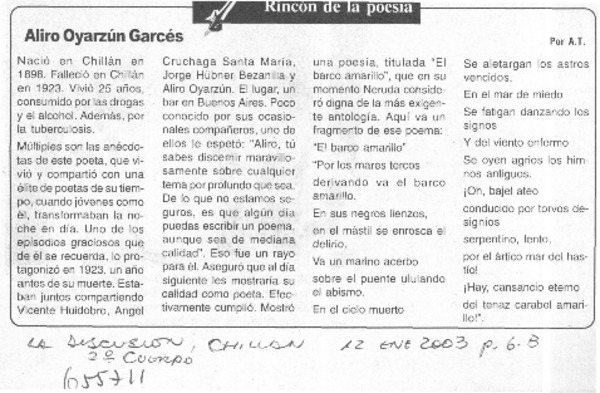 Rincón de la poesía
Aliro Oyarzún Garcés
Por A.T.
Nació en Chillán en
1898. Falleció en Chillán
en 1923. Vivió 25 años,
consumido por las drogas
y el alcohol. Además, por
la tuberculosis.
Múltiples son las anécdo-
tas de este poeta, que vi-
vió y compartió con una
élite de poetas de su tiem-
po, cuando jóvenes como
él, transformaban la no-
che en día. Uno de los
episodios graciosos que
de él se recuerda, lo pro-
tagonizó en 1923, un año
antes de su muerte. Esta-
ban juntos compartiendo
Vicente Huidobro, Angel
Cruchaga Santa María,
Jorge Hübner Bezanilla y
Aliro Oyarzún. El lugar, un
bar en Buenos Aires. Poco
conocido por sus ocasio-
nales compañeros, uno de
ellos le espetó: "Aliro, tú
sabes discernir maravillo-
samente sobre cualquier
tema por profundo que sea.
De lo que no estamos se-
guros, es que algún día
puedas escribir un poema,
aunque sea de mediana
calidad". Eso fue un rayo
para él. Aseguró que al día
siguiente les mostraría su
calidad como poeta. Efec-
tivamente cumplió. Mostró
una poesía, titulada "El
barco amarillo", que en su
momento Neruda conside-
ró digna de la más exigen-
te antología. Aquí va un
fragmento de ese poema:
"El barco amarillo"
"Por los mares torcos
derivando va el barco
amarillo.
En sus negros lienzos,
en el mástil se enrosca el
delirio.
Va un marino acerbo
sobre el puente ululando
el abismo.
En el cielo muerto
Se aletargan los astros
vencidos.
En el mar de miedo
Se fatigan danzando los
signos
Y del viento enfermo
Se oyen agrios los him-
nos antiguos.
¡Oh, bajel ateo
conducido por torvos de-
signios
serpentino, lento,
por el ártico mar del has-
tío!
¡Hay, cansancio eterno
del tenaz carabel amari-
llo!".
LA DISCUSIÓN, CHILLAN 12 ENE 2003 p. 6-B
2º CUERPO
655711